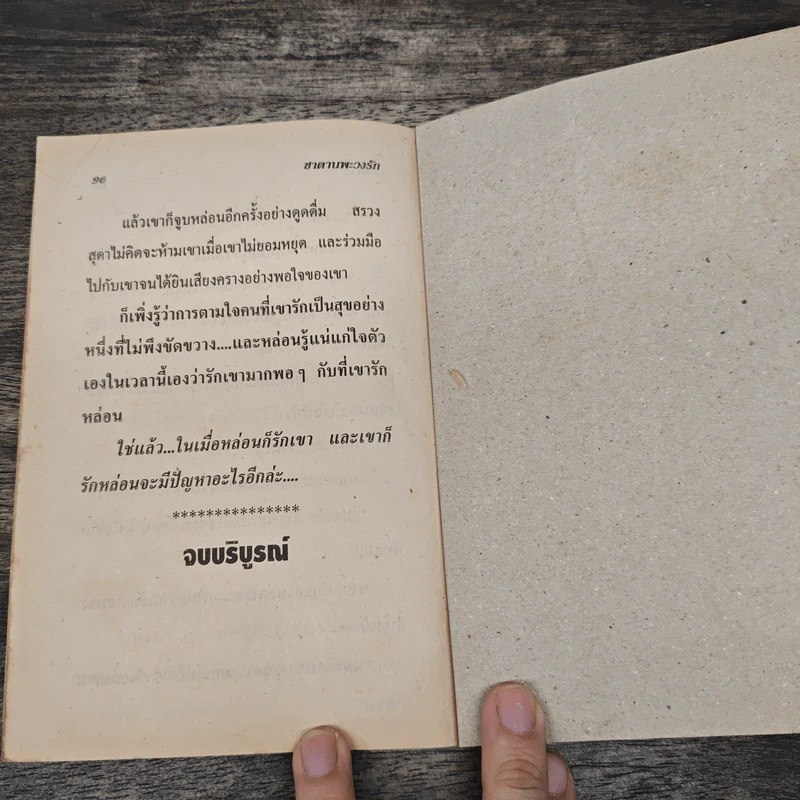 96
ซาตานพะวงรัก
แล้วเขาก็จูบหล่อนอีกครั้งอย่างดูดดื่ม สรวง
สุดาไม่คิดจะห้ามเขาเมื่อเขาไม่ยอมหยุด และร่วมมือ
ไปกับเขาจนได้ยินเสียงครางอย่างพอใจของเขา
ก็เพิ่งรู้ว่าการตามใจคนที่เขารักเป็นสุขอย่าง
หนึ่งที่ไม่พึงขัดขวาง....และหล่อนรู้แน่แก่ใจตัว
เองในเวลานี้เองว่ารักเขามากพอ ๆ กับที่เขารัก
หล่อน
ใช่แล้ว...ในเมื่อหล่อนก็รักเขา และเขาก็
รักหล่อนจะมีปัญหาอะไรอีกล่ะ....
***************
จบบริบูรณ์